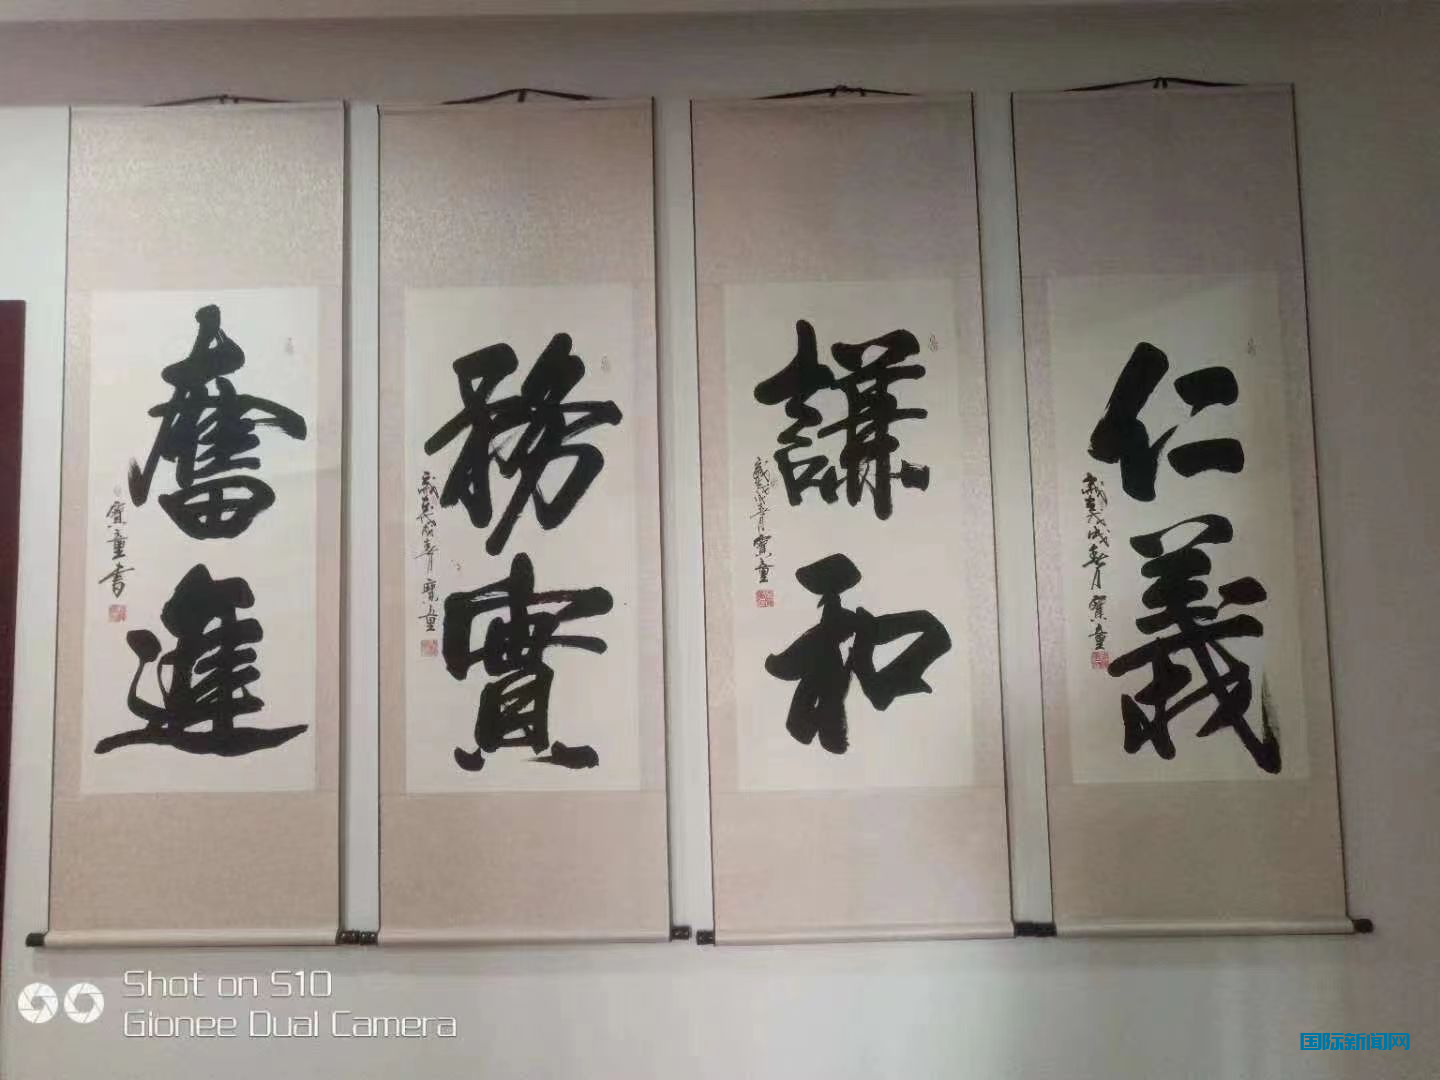 仁義
歲在戊戌春月寶童
講和
歲在戊戌春月寶童
務實
歲在戊戌春月寶童
奮進
寶童書
Shot on S10
Gionee Dual Camera
国际新闻网